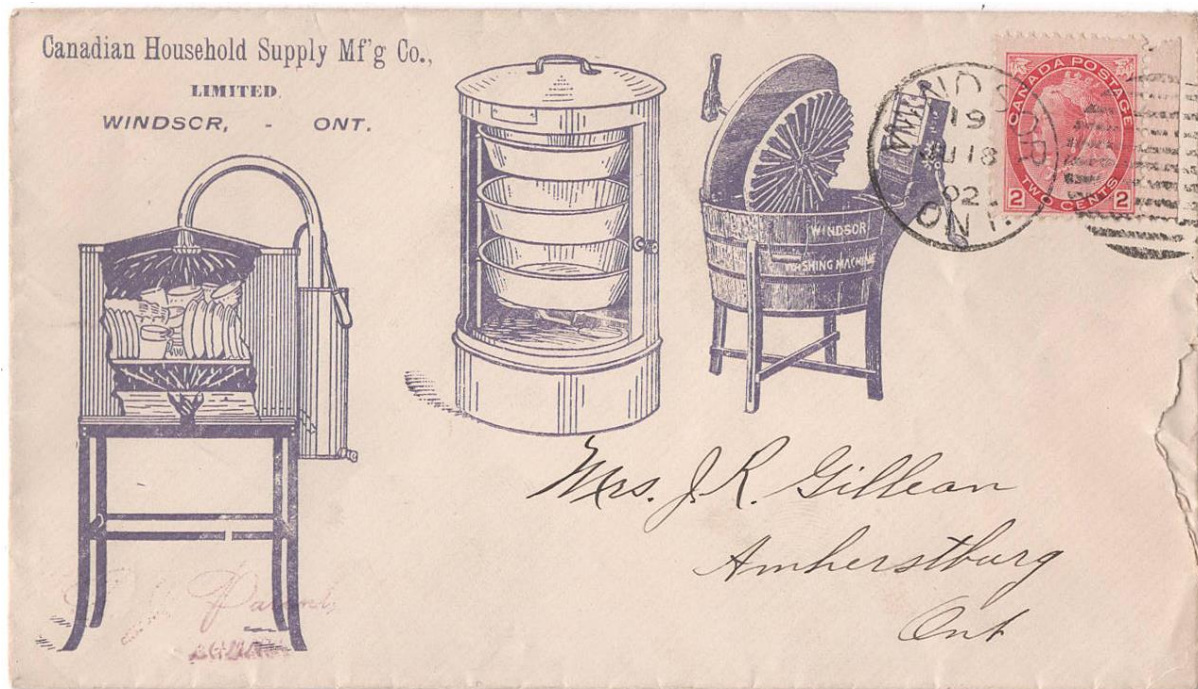 Canadian Household Supply Mf'g Co.,
LIMITED
WINDSOR, - ONT.
WINDSOR
WASHING MACHINE
WINDSOR
19
JU 18
02
ONT.
CANADA POSTAGE
2 TWO CENTS 2
Mrs. J. R. Gillean
Amherstburg
Ont
Parent,